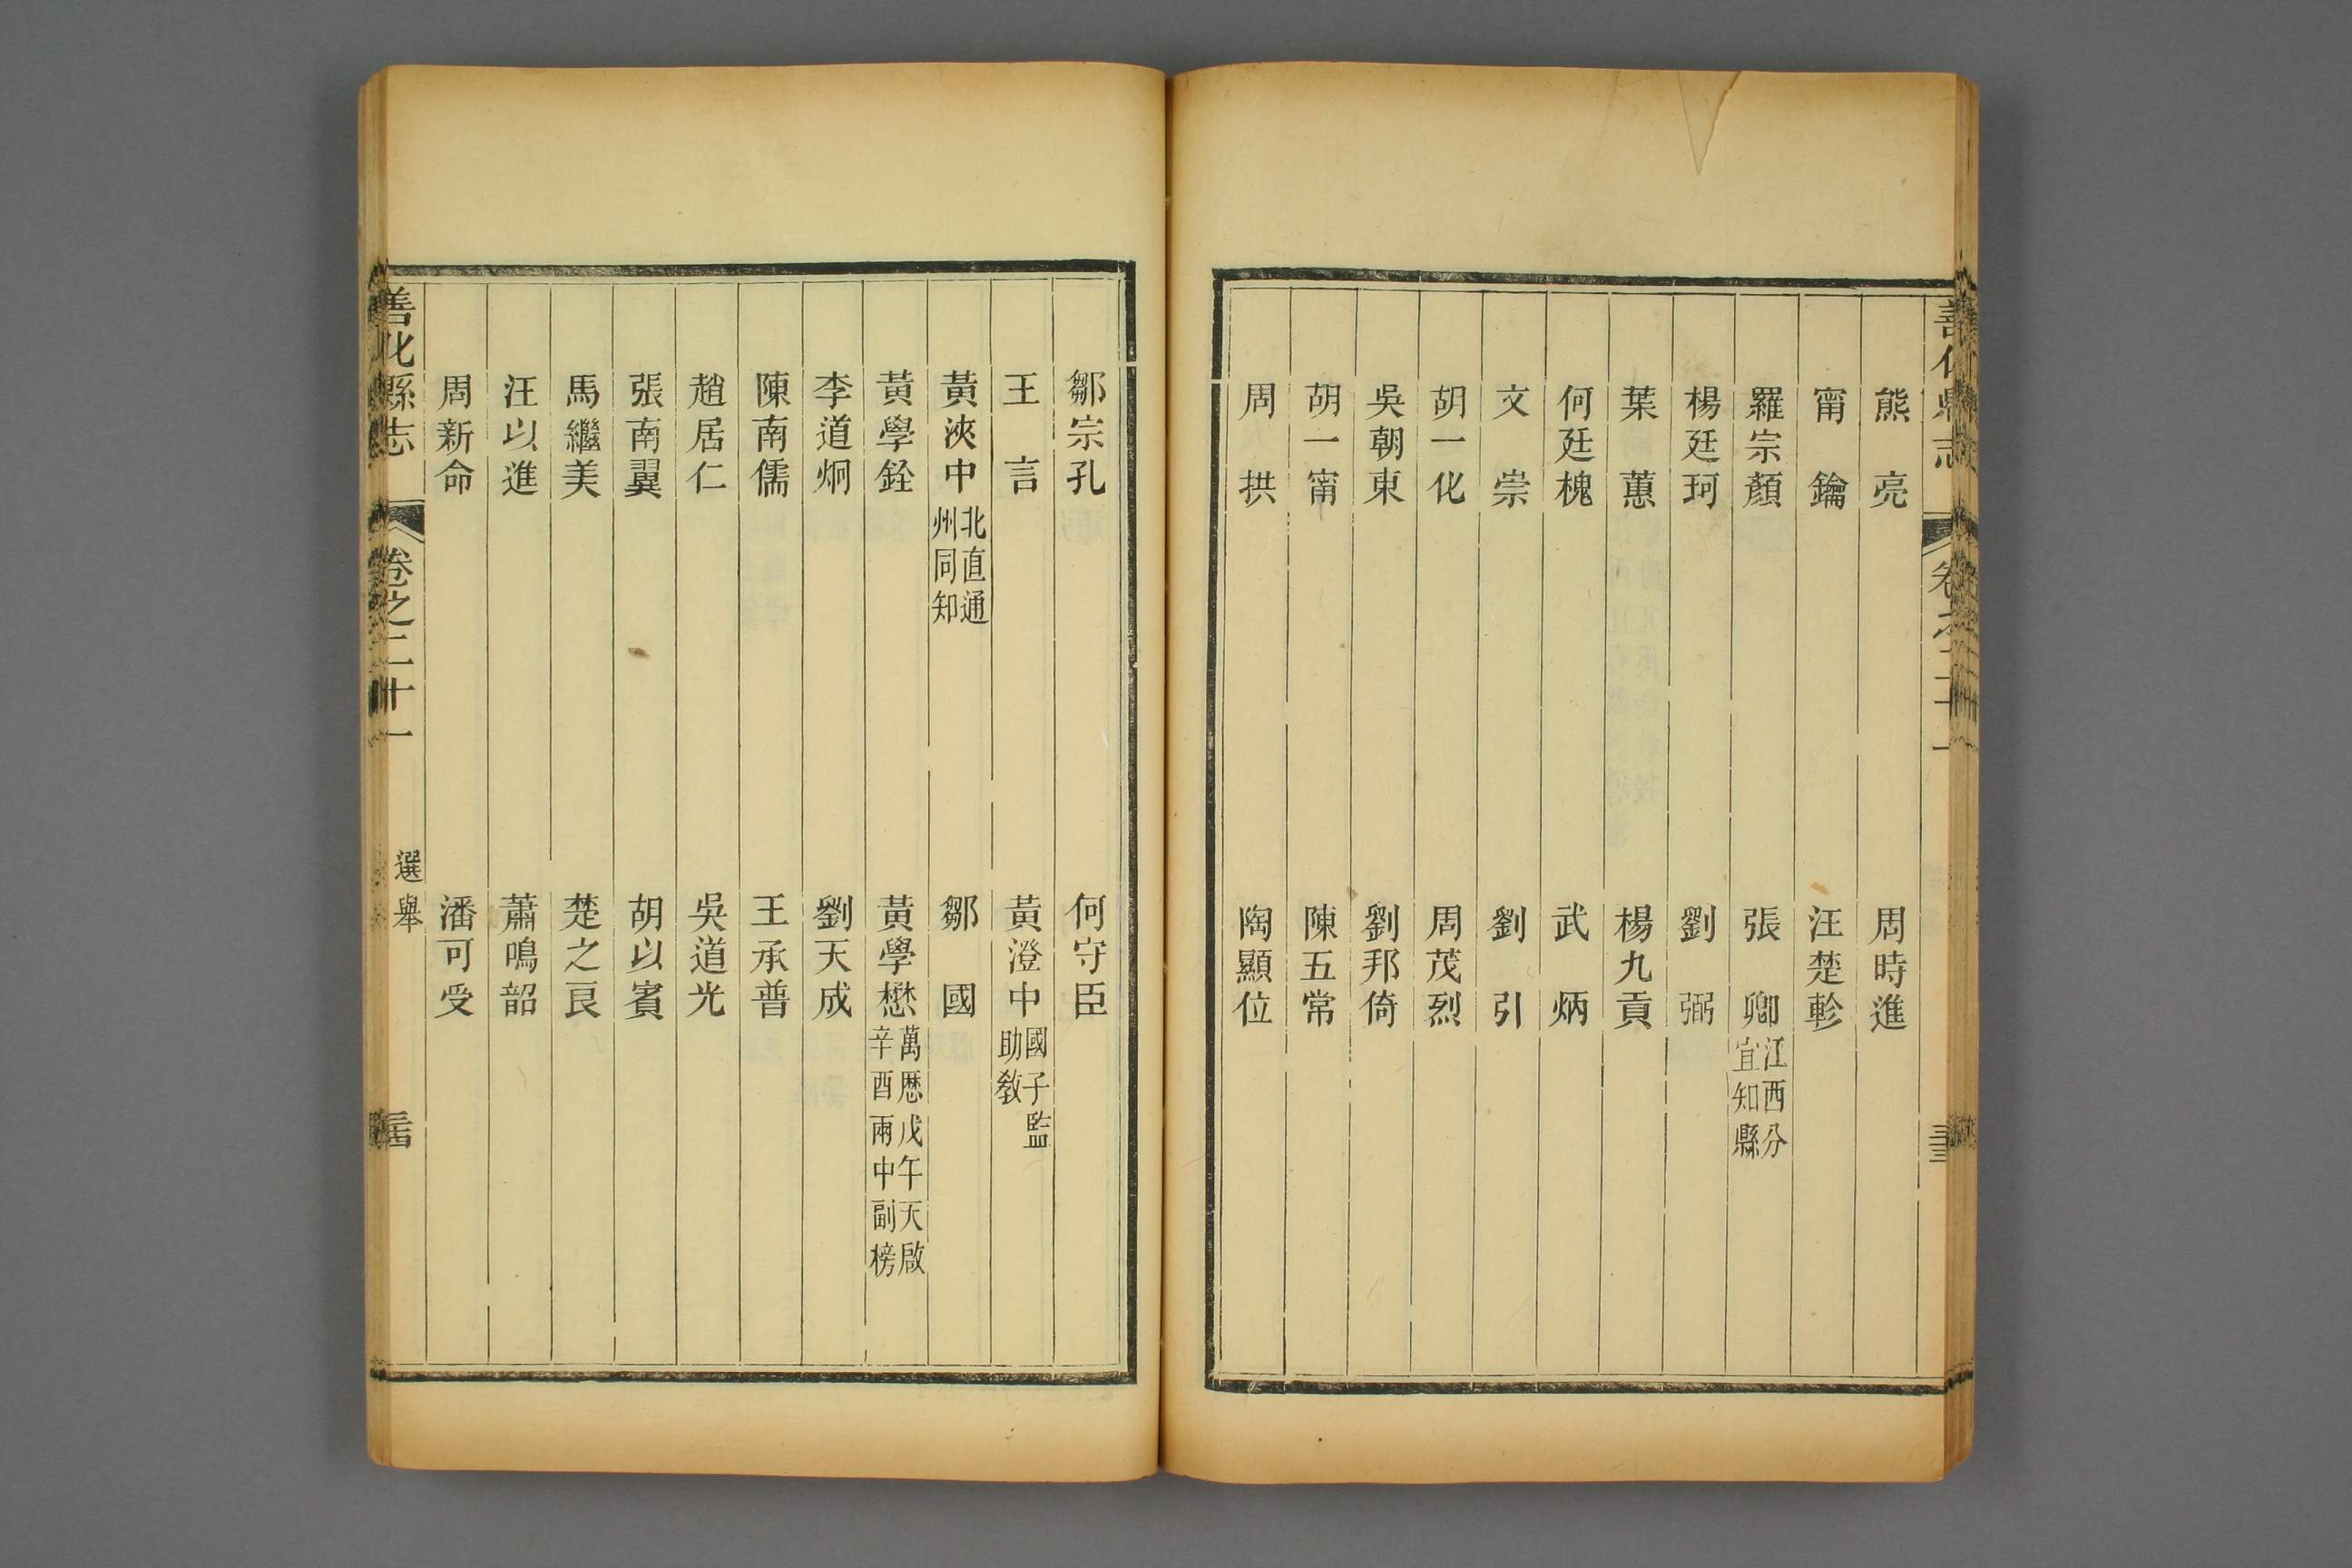 善化縣志
卷之二十一
熊 亮
周時進
甯 鑰
汪楚軫
羅宗顏
張 卿江西分宜知縣
楊廷珂
劉 弼
葉 蕙
楊九貢
何廷槐
武 炳
文 崇
劉 引
胡一化
周茂烈
吳朝東
劉邦倚
胡一甯
陳五常
周 拱
陶顯位
鄒宗孔
何守臣
王 言
黃澄中國子監助教
黃浹中北直通州同知
鄒 國
黃學銓
黃學懋萬厯戊午天啟辛酉兩中副榜
李道炯
劉天成
陳南儒
王承普
趙居仁
吳道光
張南翼
胡以賓
馬繼美
楚之良
汪以進
蕭鳴韶
周新命
潘可受
善化縣志
卷之二十一
選舉